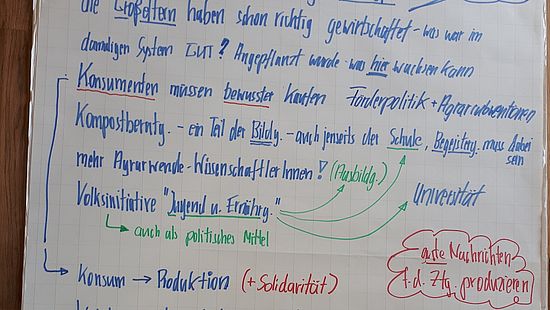 die Großeltern haben schon richtig gewirtschaftet - was war im
damaligen System GUT? Angepflanzt wurde - was hier wachsen kann
Konsumenten müssen bewusster kaufen Förderpolitik + Agrarsubventionen
Kompostberatg. - ein Teil der Bildg. - auch jenseits der Schule, Begeisterg. muss dabei sein
mehr Agrarwende-WissenschaftlerInnen! (Ausbildg.)
Volksinitiative "Jugend u. Ernährg." Universität
auch als politisches Mittel
Konsum → Produktion (+Solidarität)
gute Nachrichten
f. d. Ztg. produzieren